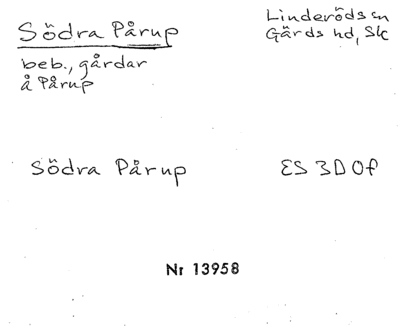 Södra Pårup
Linderöds sn
Gärds hd, Sk
beb., gårdar
å Pårup
Södra Pårup
ES 3D0f
Nr 13958